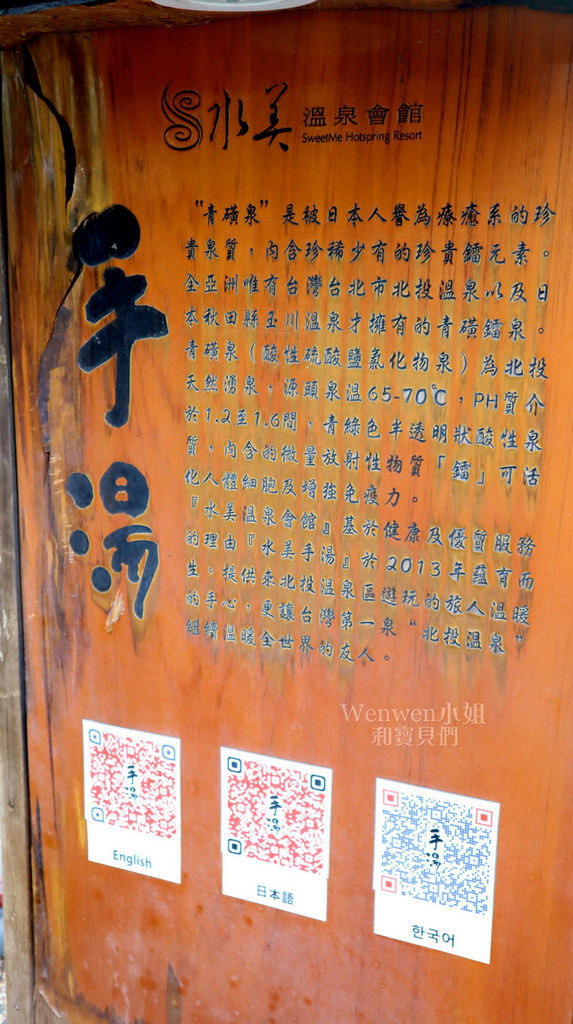 水美 溫泉會館
SweetMe Hotspring Resort
手湯
"青磺泉"是被日本人譽為療癒系的珍
貴泉質,內含珍稀少有的珍貴鐳元素。
全亞洲唯有台灣台北市北投溫泉以及日
本秋田縣玉川溫泉才擁有的青磺鐳泉。
青磺泉(酸性硫酸鹽氯化物泉)為北投
天然湧泉,源頭泉溫65-70℃,PH質介
於1.2至1.6間,青綠色半透明狀酸性泉
質,內含的微量放射性物質「鐳」可活
化人體細胞及增強免疫力。
『水美溫泉會館』基於健康及優質服務
的理由『水美手湯』於2013年蘊育而
生。提供來北投溫泉區遊玩的旅人溫暖
的手心,更讓台灣第一泉"北投溫泉"
繼續溫暖全世界的友人。
Wenwen小姐
和寶貝們
手湯
English
手湯
日本語
手湯
한국어